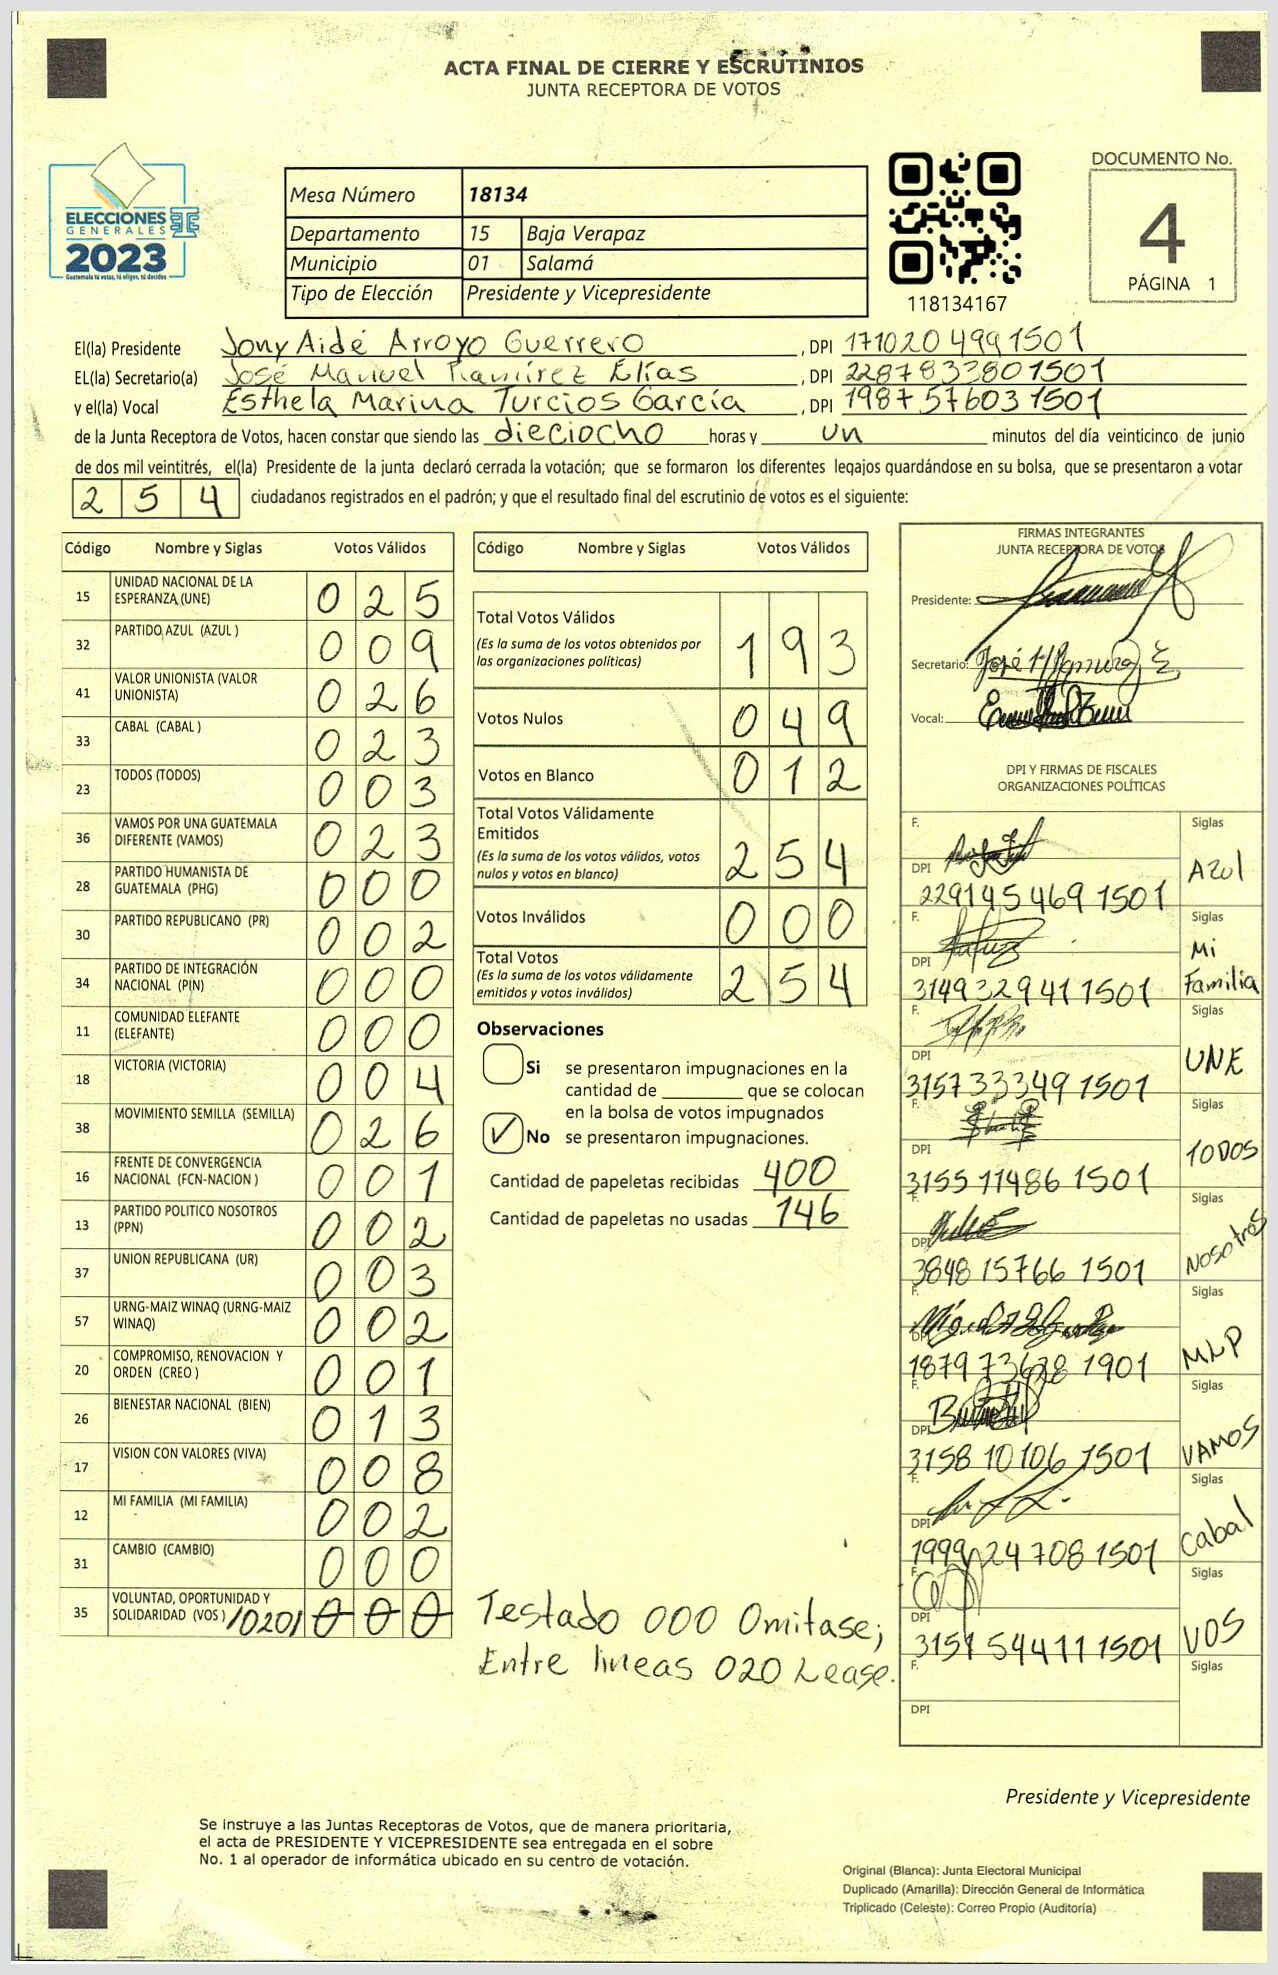 ACTA FINAL DE CIERRE Y ESCRUTINIOS
JUNTA RECEPTORA DE VOTOS
ELECCIONES
GENERALES
2023
Guatemala tú votas, tú eliges, tú decides
Mesa Número 18134
Departamento 15 Baja Verapaz
Municipio 01 Salamá
Tipo de Elección Presidente y Vicepresidente
118134167
DOCUMENTO No.
4
PÁGINA 1
El(la) Presidente Jony Aidé Arroyo Guerrero, DPI 1710204991501
EL(la) Secretario(a) José Manuel Ramírez Elías, DPI 2287833801501
y el(la) Vocal Esthela Marina Turcios García, DPI 1987576031501
de la Junta Receptora de Votos, hacen constar que siendo las dieciocho horas y un minutos del día veinticinco de junio
de dos mil veintitrés, el(la) Presidente de la junta declaró cerrada la votación; que se formaron los diferentes legajos guardándose en su bolsa, que se presentaron a votar
254 ciudadanos registrados en el padrón; y que el resultado final del escrutinio de votos es el siguiente:
Código Nombre y Siglas Votos Válidos
15 UNIDAD NACIONAL DE LA ESPERANZA (UNE) 025
32 PARTIDO AZUL (AZUL ) 009
41 VALOR UNIONISTA (VALOR UNIONISTA) 026
33 CABAL (CABAL ) 023
23 TODOS (TODOS) 003
36 VAMOS POR UNA GUATEMALA DIFERENTE (VAMOS) 023
28 PARTIDO HUMANISTA DE GUATEMALA (PHG) 000
30 PARTIDO REPUBLICANO (PR) 002
34 PARTIDO DE INTEGRACIÓN NACIONAL (PIN) 000
11 COMUNIDAD ELEFANTE (ELEFANTE) 000
18 VICTORIA (VICTORIA) 004
38 MOVIMIENTO SEMILLA (SEMILLA) 026
16 FRENTE DE CONVERGENCIA NACIONAL (FCN-NACION ) 001
13 PARTIDO POLITICO NOSOTROS (PPN) 002
37 UNION REPUBLICANA (UR) 003
57 URNG-MAIZ WINAQ (URNG-MAIZ WINAQ) 002
20 COMPROMISO, RENOVACION Y ORDEN (CREO ) 001
26 BIENESTAR NACIONAL (BIEN) 013
17 VISION CON VALORES (VIVA) 008
12 MI FAMILIA (MI FAMILIA) 002
31 CAMBIO (CAMBIO) 000
35 VOLUNTAD, OPORTUNIDAD Y SOLIDARIDAD (VOS ) /020/ 000
Código Nombre y Siglas Votos Válidos
Total Votos Válidos
(Es la suma de los votos obtenidos por
las organizaciones políticas) 193
Votos Nulos 049
Votos en Blanco 012
Total Votos Válidamente
Emitidos
(Es la suma de los votos válidos, votos
nulos y votos en blanco) 254
Votos Inválidos 000
Total Votos
(Es la suma de los votos válidamente
emitidos y votos inválidos) 254
Observaciones
Si se presentaron impugnaciones en la
cantidad de ________ que se colocan
en la bolsa de votos impugnados
✓ No se presentaron impugnaciones.
Cantidad de papeletas recibidas 400
Cantidad de papeletas no usadas 146
Testado 000 Omitase;
Entre lineas 020 Lease.
FIRMAS INTEGRANTES
JUNTA RECEPTORA DE VOTOS
Presidente:
Secretario:
Vocal:
DPI Y FIRMAS DE FISCALES
ORGANIZACIONES POLÍTICAS
F. Siglas
DPI 2291454691501 Azul
F. Siglas
DPI 3149329411501 Mi Familia
F. Siglas
DPI 3157333491501 UNE
F. Siglas
DPI 3155114861501 TODOS
F. Siglas
DPI 3848157661501 Nosotros
F. Siglas
DPI 1879736281901 MLP
F. Siglas
DPI 3158101061501 VAMOS
F. Siglas
DPI 1999247081501 Cabal
F. Siglas
DPI 3151544111501 VOS
F. Siglas
DPI
Presidente y Vicepresidente
Se instruye a las Juntas Receptoras de Votos, que de manera prioritaria,
el acta de PRESIDENTE Y VICEPRESIDENTE sea entregada en el sobre
No. 1 al operador de informática ubicado en su centro de votación.
Original (Blanca): Junta Electoral Municipal
Duplicado (Amarilla): Dirección General de Informática
Triplicado (Celeste): Correo Propio (Auditoría)